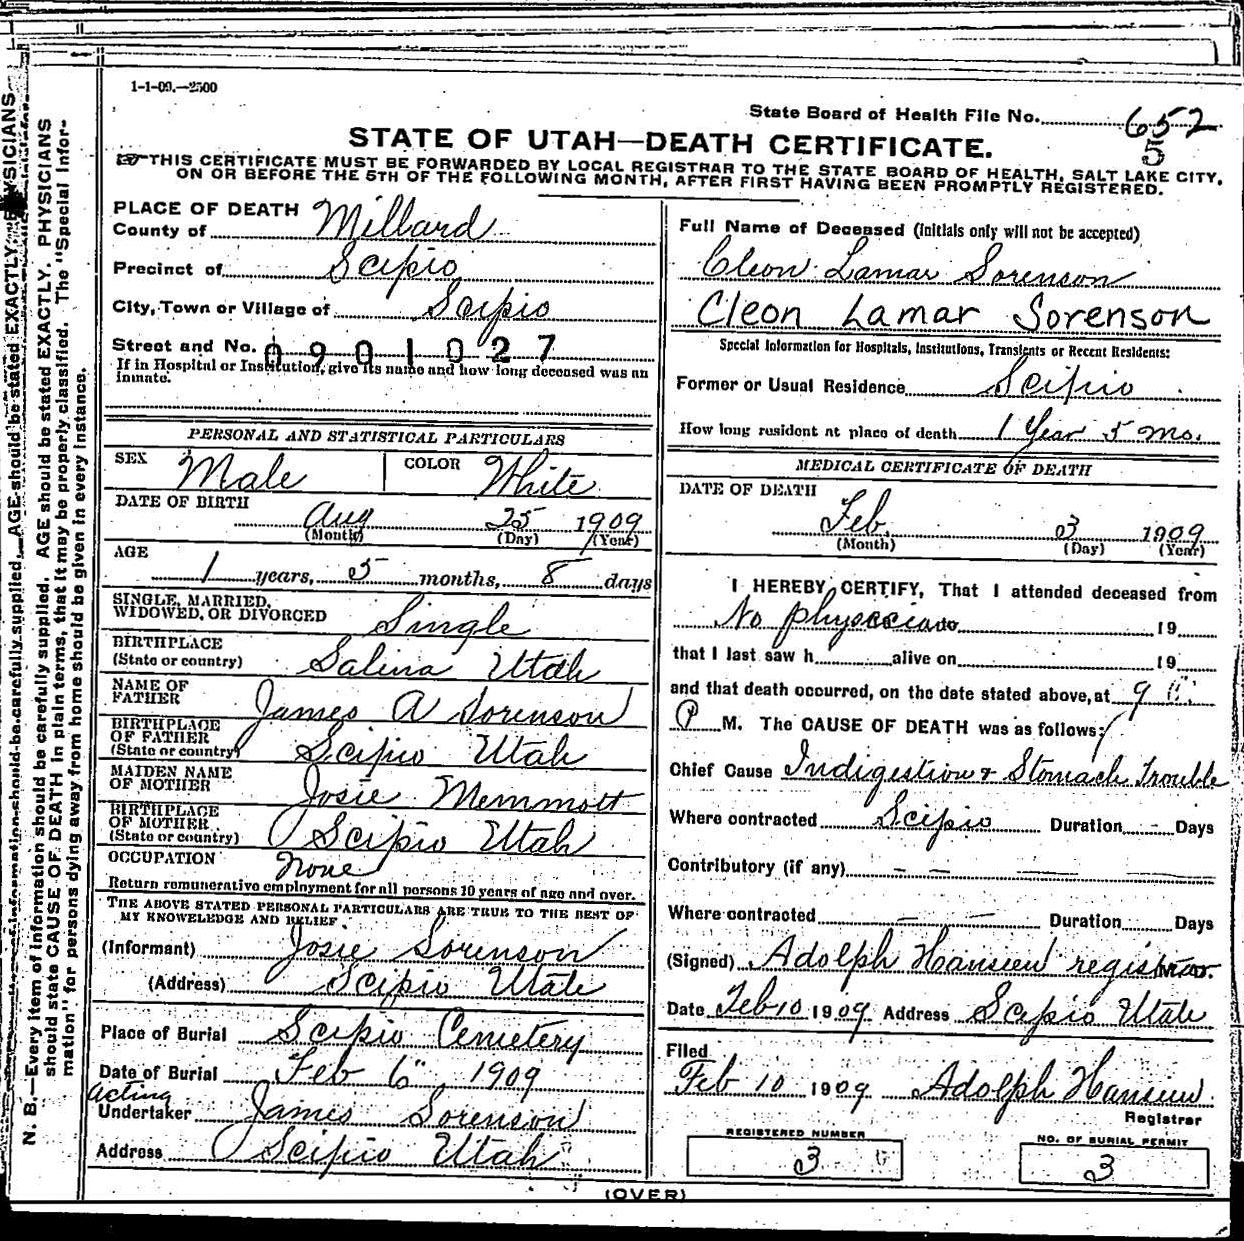 1-1-09.—2500
State Board of Health File No. 652
5
STATE OF UTAH—DEATH CERTIFICATE.
☞THIS CERTIFICATE MUST BE FORWARDED BY LOCAL REGISTRAR TO THE STATE BOARD OF HEALTH, SALT LAKE CITY,
ON OR BEFORE THE 5TH OF THE FOLLOWING MONTH, AFTER FIRST HAVING BEEN PROMPTLY REGISTERED.
PLACE OF DEATH
County of Millard
Precinct of Scipio
City, Town or Village of Scipio
Street and No. 0901027
If in Hospital or Institution, give its name and how long deceased was an
inmate.
PERSONAL AND STATISTICAL PARTICULARS
SEX Male COLOR White
DATE OF BIRTH
Aug 25 1909
(Month) (Day) (Year)
AGE
1 years, 5 months, 8 days
SINGLE, MARRIED,
WIDOWED, OR DIVORCED Single
BIRTHPLACE
(State or country) Salina Utah
NAME OF
FATHER James A Sorenson
BIRTHPLACE
OF FATHER
(State or country) Scipio Utah
MAIDEN NAME
OF MOTHER Josie Memmott
BIRTHPLACE
OF MOTHER
(State or country) Scipio Utah
OCCUPATION None
Return remunerative employment for all persons 10 years of age and over.
THE ABOVE STATED PERSONAL PARTICULARS ARE TRUE TO THE BEST OF
MY KNOWELEDGE AND BELIEF
(Informant) Josie Sorenson
(Address) Scipio Utah
Place of Burial Scipio Cemetery
Date of Burial Feb 6" 1909
acting
Undertaker James Sorenson
Address Scipio Utah
Full Name of Deceased (initials only will not be accepted)
Cleon Lamar Sorenson
Cleon Lamar Sorenson
Special Information for Hospitals, Institutions, Transients or Recent Residents:
Former or Usual Residence Scipio
How long resident at place of death 1 Year 5 mo.
MEDICAL CERTIFICATE OF DEATH
DATE OF DEATH
Feb. 03 1909
(Month) (Day) (Year)
I HEREBY CERTIFY, That I attended deceased from
No physician to 19
that I last saw h alive on 19
and that death occurred, on the date stated above, at 9
P M. The CAUSE OF DEATH was as follows:
Chief Cause Indigestion & Stomach Trouble
Where contracted Scipio Duration - Days
Contributory (if any) - -
Where contracted - - Duration Days
(Signed) Adolph Hansen registrar.
Date Feb 10 1909 Address Scipio Utah
Filed
Feb 10 1909 Adolph Hansen
Registrar
REGISTERED NUMBER
3
NO. OF BURIAL PERMIT
3
(OVER)
N. B.—Every item of information should be carefully supplied. AGE should be stated EXACTLY. PHYSICIANS
should state CAUSE OF DEATH in plain terms, that it may be properly classified. The "Special Infor-
mation" for persons dying away from home should be given in every instance.